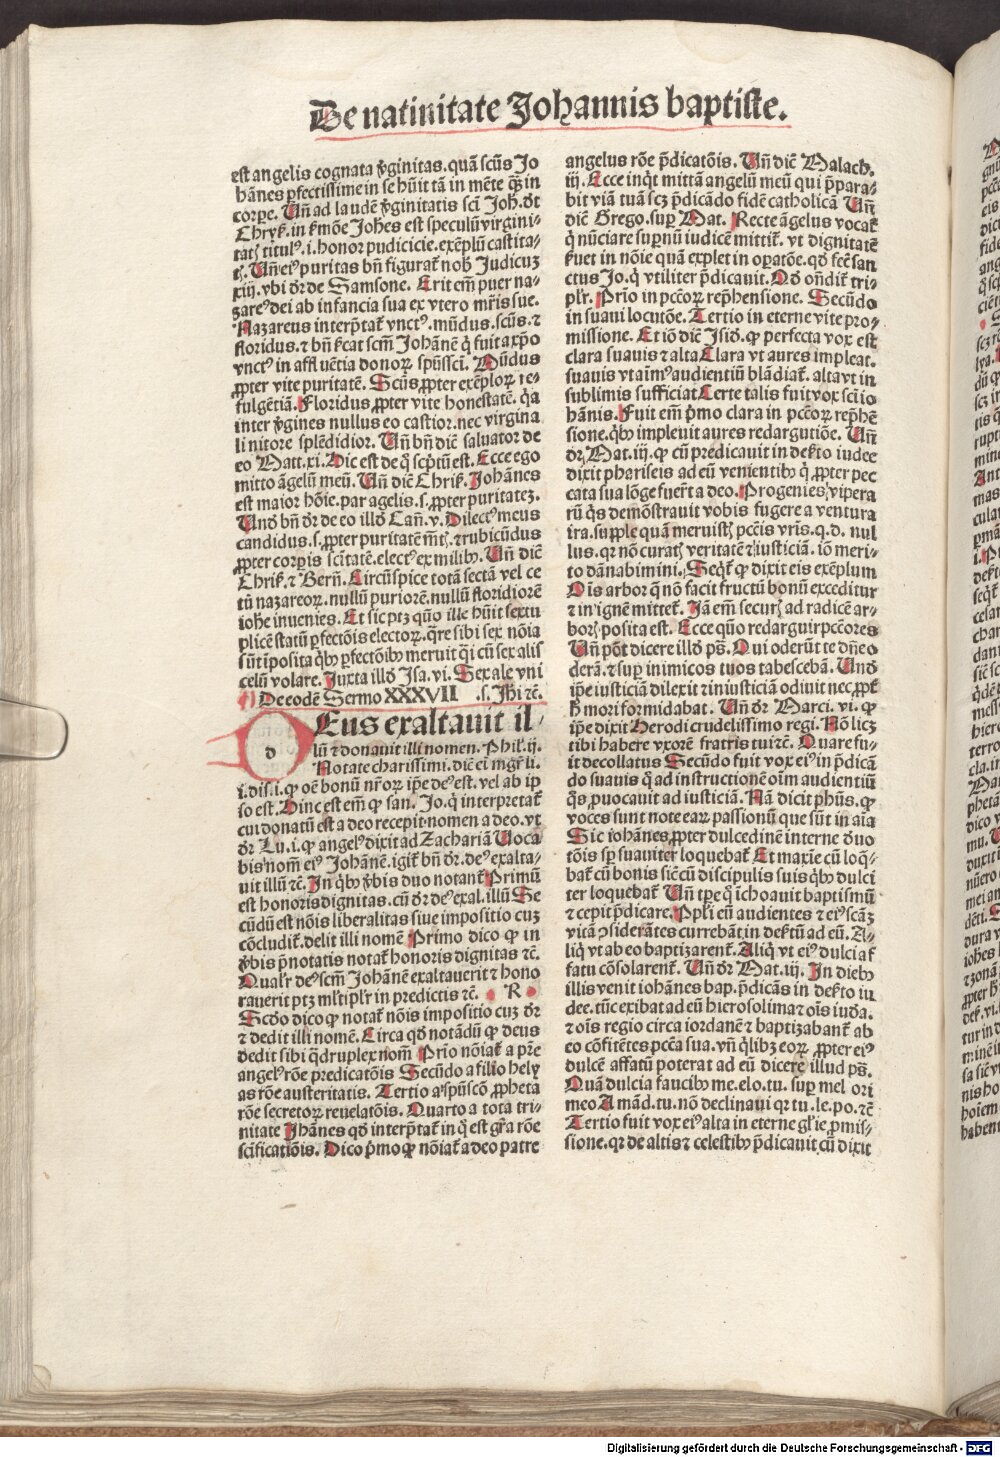 De natiuitate Johannis baptiste.
est angelis cognata v̄ginitas. quā scūs Jo
hānes ꝑfectissime in se hūit tā in mēte q̄ꝫ in
corꝑe. Un̄ ad laudē v̄ginitatis sc̄i Joh. dt̄
Chryſ. in ẜmōe Johēs est speculū virgini-
tatꝭ titulꝰ .i. honor pudicicie. exēplū castita-
tꝭ. Un̄ eiꝰ puritas bn̄ figurat᷑ nob̄ Judicuꝫ
xiij. vbi dr̄ de Samsone. Erit em̄ puer na-
zareꝰ dei ab infancia sua ex vtero mr̄is sue.
Nazareus interp̄tat᷑ vnctꝰ. mūdus. scūs. ⁊
floridus. ⁊ bn̄ ẜcat scm̄ Johānē q̇ fuit a xp̄o
vnctꝰ in affluētia donoꝝ sp̄ūssci. Mūdus
ꝓpter vite puritatē. Scūs ꝓpter exēploꝝ re-
fulgētiā. Floridus ꝓpter vite honestatē. q̇a
inter v̄gines nullus eo castior. nec virgina
li nitore splēdidior. Un̄ bn̄ diē saluator de
eo Matt. xi. Hic est de q̇ scp̄tū est. Ecce ego
mitto āgelū meū. Un̄ diē Chriſ. Johānes
est maior hōie. par āgelis .s. ꝓpter puritateꝫ.
Und̄ bn̄ dr̄ de eo illd̄ Can̄. v. Dilectꝰ meus
candidus .s. ꝓpter puritatē mētꝭ. ⁊ rubicūdus
ꝓpter corꝑis scītatē. electꝰ ex milibꝰ. Un̄ diē
Chriſ. ⁊ Bern̄. Circūspice totā sectā vel ce
tū nazareoꝝ. nullū puriorē. nullū floridiorē
iohe inuenies. Et sic ptꝫ qūo ille hūit sextu
plicē statū ꝑfectōis electoꝝ. q̄re sibi sex nōia
sūt īposita q̇bꝰ ꝑfectōibꝰ meruit q̇i cū sex alis
celū volare. Juxta illd̄ Isa. vi. Sex ale vni
De eodē Sermo XXXVII .s. Jhi ⁊c̄.
DEus exaltauit il-
lū ⁊ donauit illi nomen. Phil. ij.
Notate charissimi. diē ei mgr̄ li.
i. dis. i. ꝙ oē bonū nr̄oꝝ ip̄e deꝰ est. vel ab ip
so est. Hinc est em̄ ꝙ san. Jo. q̇ interpretat᷑
cui donatū est a deo recepit nomen a deo. vt
dr̄ Lu. i. ꝙ angelꝰ dixit ad Zachariā Uoca
bis nom̄ eiꝰ Johānē. igit᷑ bn̄ dr̄. deꝰ exalta-
uit illū ⁊c̄. In q̇bꝰ v̄bis duo notant᷑ Primū
est honoris dignitas. cū dr̄ deꝰ exal. illū Se
cūdū est nōis liberalitas siue impositio cuꝫ
cōcludit᷑. delit illi nomē Primo dico ꝙ in
v̄bis p̄notatis notat᷑ honoris dignitas ⁊c̄.
Qualr̄ deꝰ scm̄ Johānē exaltauerit ⁊ hono
rauerit ptꝫ ml̄tiplr̄ in predictis ⁊c̄. R
Scd̄o dico ꝙ notat᷑ nōis impositio cuꝫ dr̄
⁊ dedit illi nomē. Circa qd̄ notādū ꝙ deus
dedit sibi q̄druplex nom̄ Prīo nōiat᷑ a pr̄e
angelꝰ rōe predicatōis Secūdo a filio hely
as rōe austeritatis. Tertio a sp̄ūscō ꝓpheta
rōe secretoꝝ reuelatōis. Quarto a tota tri-
nitate Jhānes qd̄ interp̄tat᷑ in q̇ est gr̄a rōe
sc̄ificatiōis. Dico p̄mo ꝙ nōiat᷑ a deo patre
angelus rōe p̄dicatōis. Un̄ diē Malach.
iij. Ecce inq̇t mittā angelū meū qui p̄para-
bit viā tuā scꝫ p̄dicādo fidē catholicā Un̄
diē Grego. suꝑ Mat. Recte āgelus vocat᷑
q̇ nūciare suꝑnū iudicē mittit᷑. vt dignitatē
ẜuet in nōie quā explet in oꝑatōe. qd̄ fec̄ san
ctus Jo. q̇ vtiliter p̄dicauit. Qd̄ on̄dit᷑ tri-
plr̄. Prīo in pcc̄oꝝ rep̄hensione. Secūdo
in suaui locutōe. Tertio in eterne vite pro-
missione. Et iō diē Isid̄. ꝙ perfecta vox est
clara suauis ⁊ alta Clara vt aures impleat.
suauis vt aīmꝰ audientiū blādiat᷑. alta vt in
sublimis sufficiat Certe talis fuit vox sci io
hānis. Fuit em̄ p̄mo clara in pcc̄oꝝ rep̄hē
sione. q̇bꝰ impleuit aures redargutiōe. Un̄
dr̄ Mat. iij. ꝙ cū predicauit in deẜto iudee
dixit phariseis ad eū venientibꝰ q̇ ꝓpter pec
cata sua lōge fuer̄t a deo. Progenies vipera
rū q̇s demōstrauit vobis fugere a ventura
ira. supple quā meruistꝭ pcc̄is vr̄is. q. d. nul
lus. qꝛ nō curatꝭ veritatē ⁊ iusticiā. iō meri-
to dānabimini. Seq̇t᷑ ꝙ dixit eis exēplum
Oīs arbor q̄ nō facit fructū bonū exceditur
⁊ in ignē mittet᷑. Jā em̄ securꝭ ad radicē ar-
borꝭ posita est. Ecce qūo redarguir pcc̄ores
Un̄ pōt dicere illd̄ ps̄. Qui oderūt te dn̄e o
derā. ⁊ suꝑ inimicos tuos tabescebā. Und̄
ip̄e iusticiā dilexit ⁊ iniusticiā odiuit nec ꝓpt̄
h̄ mori formidabat. Un̄ dr̄ Marci. vi. ꝙ
ip̄e dixit Herodi crudelissimo regi. Nō licꝫ
tibi habere vxorē fratris tui ⁊c̄. Quare fu-
it decollatus Secūdo fuit vox eiꝰ in p̄dicā
do suauis q̇ ad instructionē oīm audientiū
q̇s ꝓuocauit ad iusticiā. Nā dicit ph̄us. ꝙ
voces sunt note eaꝝ passionū que sūt in aīa
Sic iohānes ꝓpter dulcedinē interne d̄uo
tōis sꝑ suauiter loquebat᷑ Et maxīe cū loq̄-
bat᷑ cū bonis sicē cū discipulis suis q̇bꝰ dulci
ter loquebat᷑ Un̄ tꝑe q̇ īchoauit baptismū
⁊ cepit p̄dicare. Ppl̄i eū audientes ⁊ eiꝰ scāꝫ
vitā ꝯsiderātes currebāt in deẜtū ad eū. A-
liq̇ vt ab eo baptizarent᷑. Aliq̇ vt eiꝰ dulcia f
fatu cōsolarent᷑. Un̄ dr̄ Mat. iij. In diebꝰ
illis venit iohānes bap. p̄dicās in deẜto iu
dee. tūc exibat ad eū hierosolima ⁊ oīs iuda.
⁊ oīs regio circa iordanē ⁊ baptizabant᷑ ab
eo cōfitētes pcc̄a sua. vn̄ q̇libꝫ eoꝝ ꝓpter eiꝰ
dulcē affatū poterat ad eū dicere illud ps̄.
Quā dulcia faucibꝰ me. elo. tu. suꝑ mel ori
meo A mād. tu. nō declinaui qꝛ tu. le. po. ⁊c̄
Tertio fuit vox eiꝰ alta in eterne gl̄ie ꝓmis-
sione. qꝛ de altis ⁊ celestibꝰ p̄dicauit cū dixit
Digitalisierung gefördert durch die Deutsche Forschungsgemeinschaft - DFG